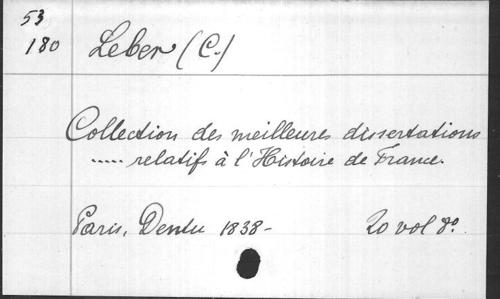 53
180 Leber (C.)
Collection des meilleures dissertations
..... relatifs à l'Histoire de France.
Paris, Dentu 1838- 20 vol 8º.